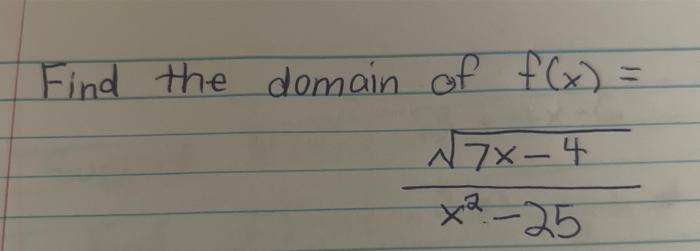 Find the domain of f(x) =
√7x - 4
x² - 25